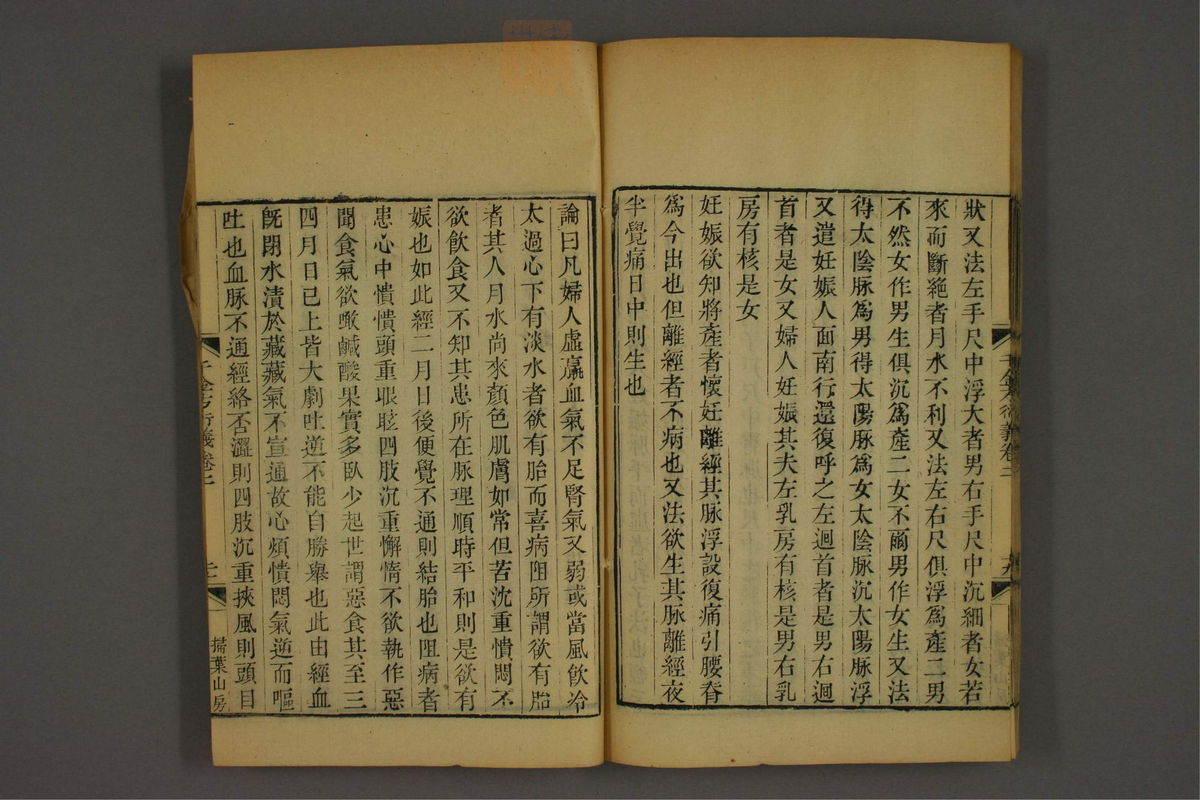 狀又法左手尺中浮大者男右手尺中沉細者女若
來而斷絕者月水不利又法左右尺俱浮爲產二男
不然女作男生俱沉爲產二女不爾男作女生又法
得太陰脉爲男得太陽脉爲女太陰脉沉太陽脉浮
又遣妊娠人面南行還復呼之左迴首者是男右迴
首者是女又婦人妊娠其夫左乳房有核是男右乳
房有核是女
妊娠欲知將產者懷妊離經其脉浮設復痛引腰脊
爲今出也但離經者不病也又法欲生其脉離經夜
半覺痛日中則生也
論曰凡婦人虛羸血氣不足腎氣又弱或當風飲冷
太過心下有淡水者欲有胎而喜病阻所謂欲有胎
者其人月水尚來顏色肌膚如常但苦沈重憒悶不
欲飲食又不知其患所在脉理順時平和則是欲有
娠也如此經二月日後便覺不通則結胎也阻病者
患心中憒憒頭重眼眩四肢沉重懈惰不欲執作惡
聞食氣欲噉鹹酸果實多臥少起世謂惡食其至三
四月日已上皆大劇吐逆不能自勝舉也此由經血
既閉水漬於藏藏氣不宣通故心煩憒悶氣逆而嘔
吐也血脉不通經絡否澀則四肢沉重挾風則頭目
千金方衍義卷二
掃葉山房